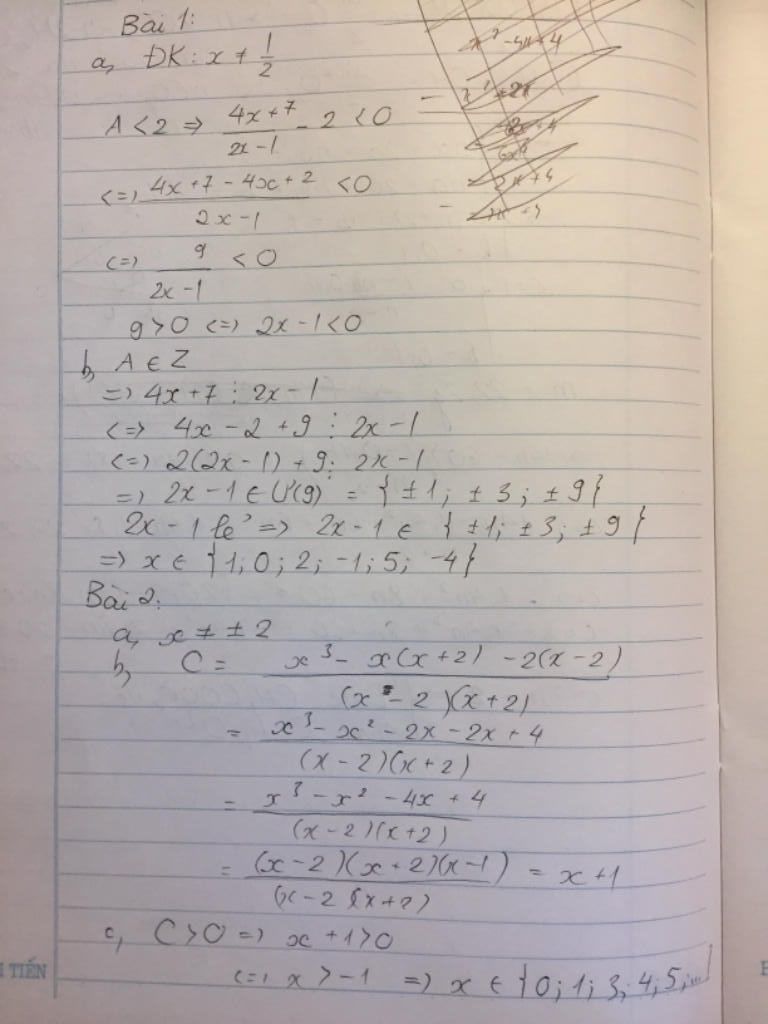 Bài 1:
a, ĐK: x ≠ 1/2
A < 2 => (4x+7)/(2x-1) - 2 < 0
<=> (4x+7-4x+2)/(2x-1) < 0
<=> 9/(2x-1) < 0
9 > 0 <=> 2x-1 < 0
b, A ∈ Z
=> 4x+7 ⋮ 2x-1
<=> 4x-2+9 ⋮ 2x-1
<=> 2(2x-1)+9 ⋮ 2x-1
=> 2x-1 ∈ Ư(9) = {±1; ±3; ±9}
2x-1 lẻ => 2x-1 ∈ {±1; ±3; ±9}
=> x ∈ {1; 0; 2; -1; 5; -4}
Bài 2:
a, x ≠ ±2
b, C = (x³ - x(x+2) - 2(x-2))/((x-2)(x+2))
= (x³ - x² - 2x - 2x + 4)/((x-2)(x+2))
= (x³ - x² - 4x + 4)/((x-2)(x+2))
= ((x-2)(x+2)(x-1))/((x-2)(x+2)) = x+1
c, C > 0 => x+1 > 0
<=> x > -1 => x ∈ {0; 1; 3; 4; 5; ...}
TIẾN